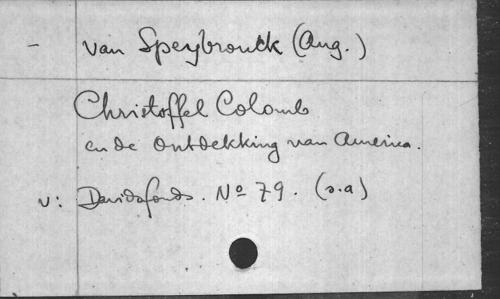 – van Speybrouck (Aug.)
Christoffel Colomb
en de Ontdekking van America.
v: Davidsfonds. Nº 79. (s.a)